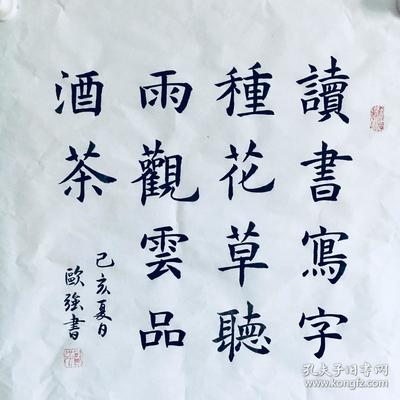 讀書寫字
種花草聽
雨觀雲品
酒茶
己亥夏日
歐強書
孔夫子旧书网
www.kongfz.com